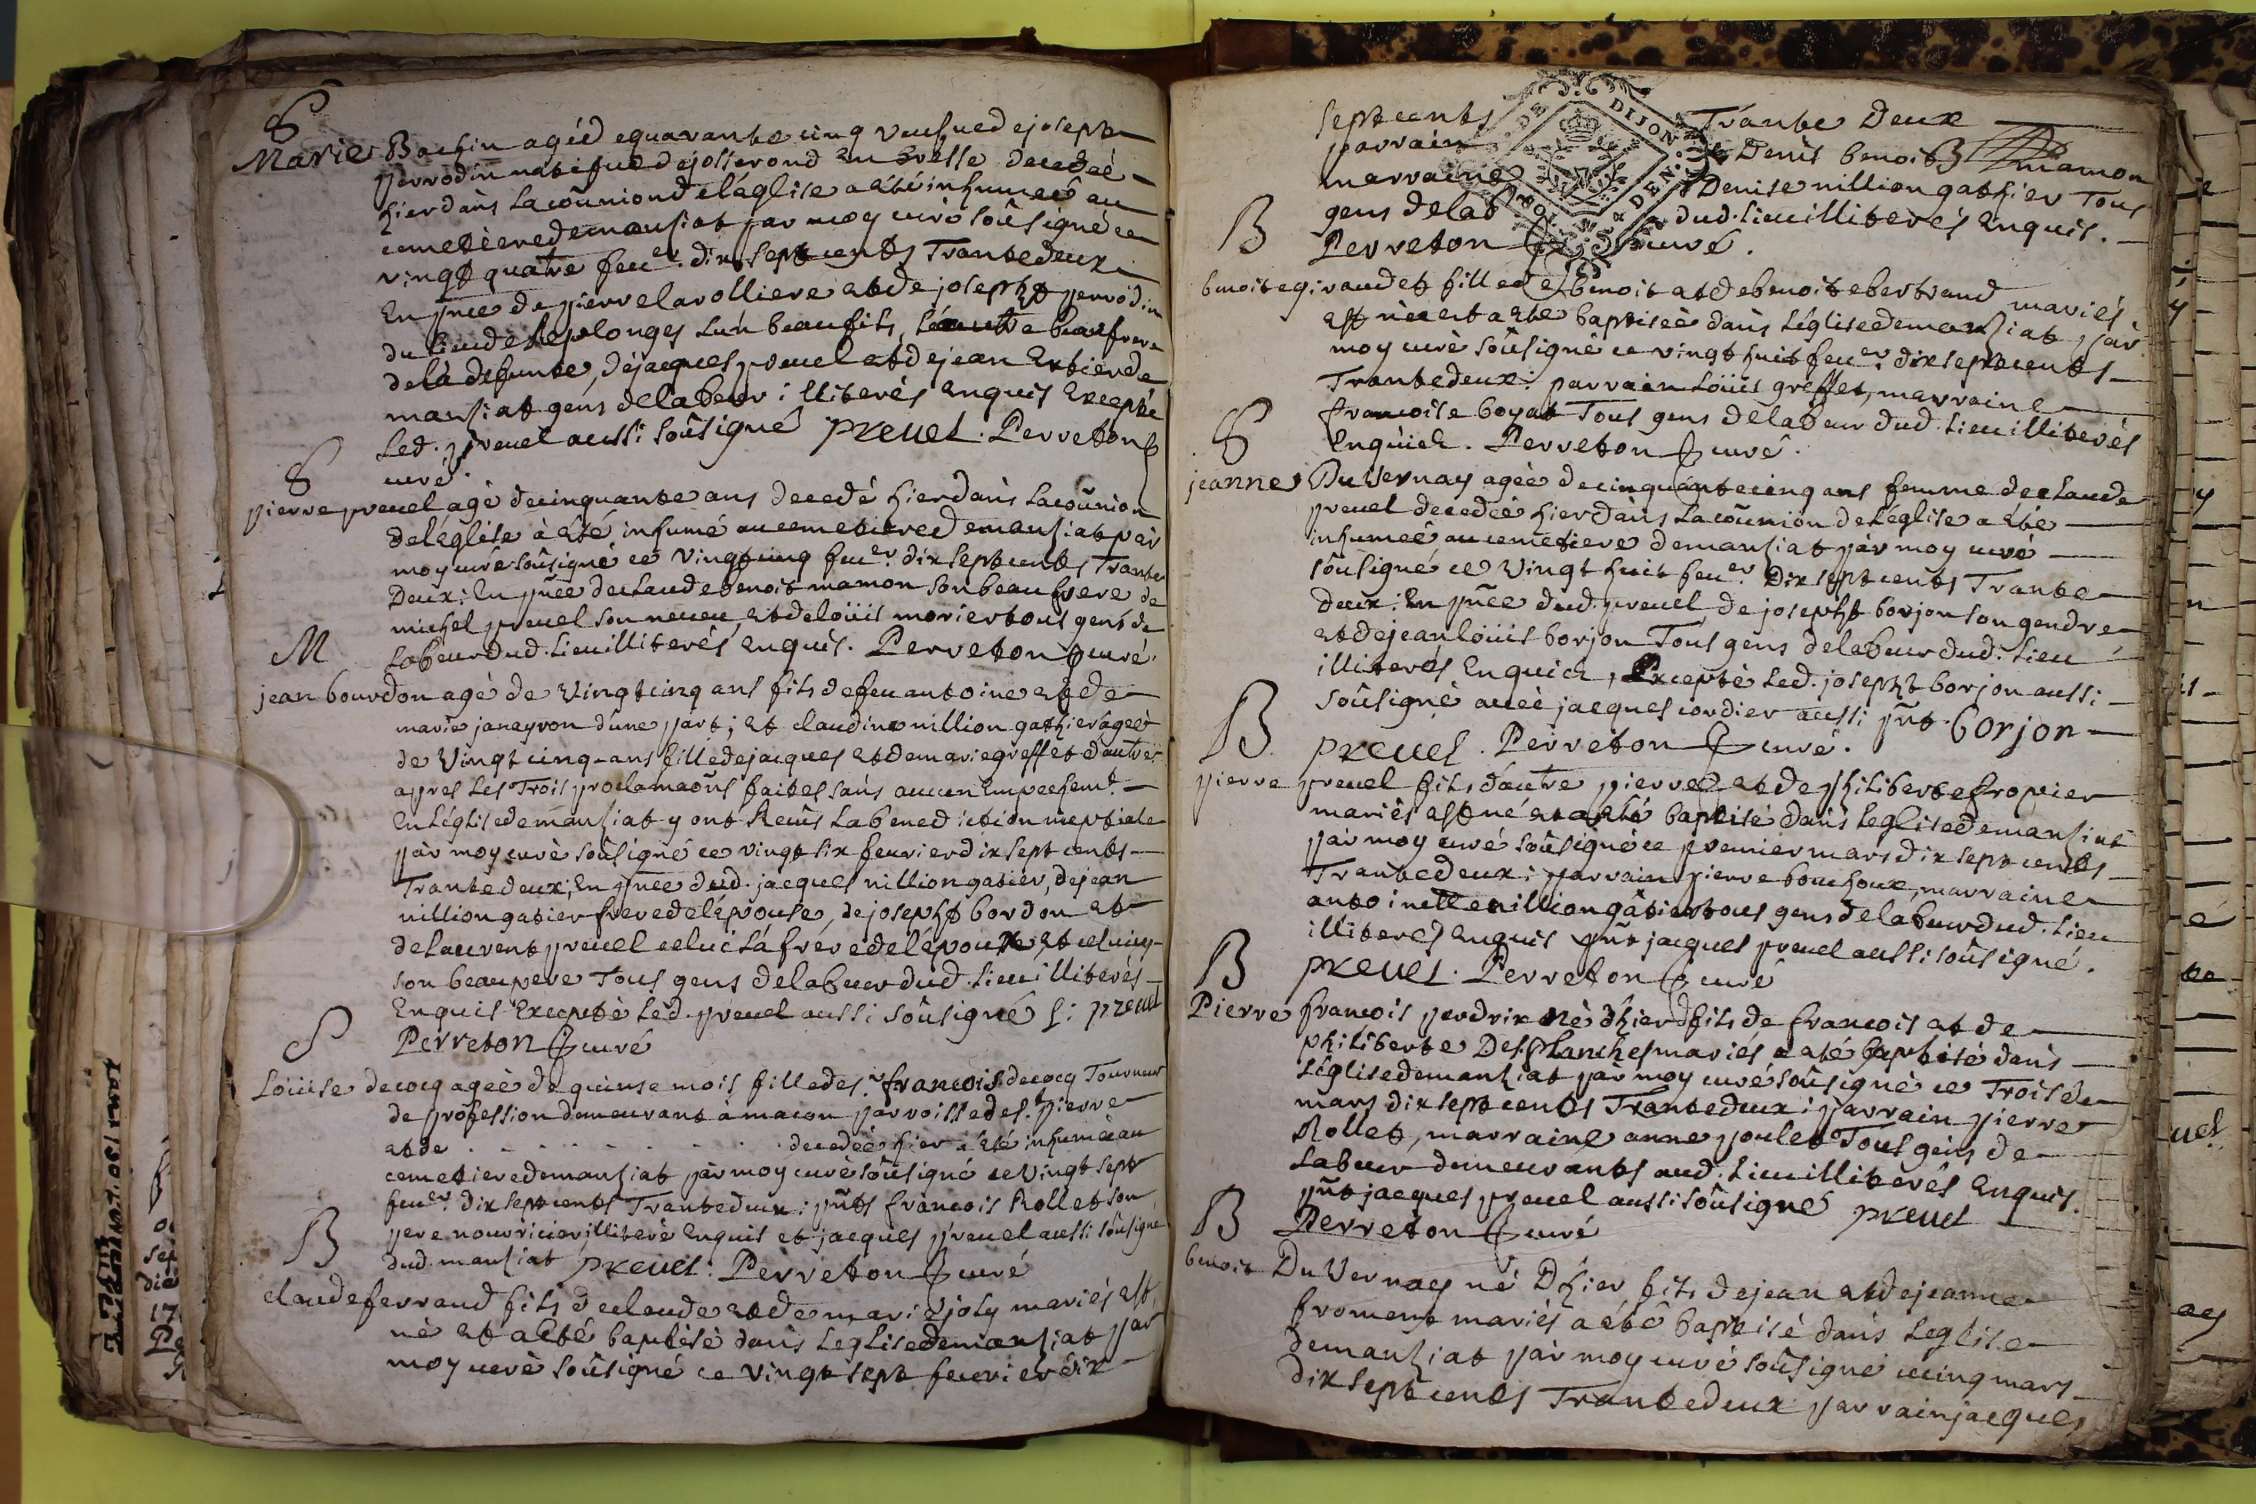 S
Marie Bachin agéé de quarante cinq veufue de joseph
perrodin natifue de josserond en bresse decedeé
hier dans la comunion de l'églize a eté inhumeé au
cemetiere de mansiat par moy curé soûsigné ce
vingt quatre feuer. dix sept cents Trante deux
En pnce de pierre larolliere et de joseph perrodin
du lieu de Replonges l'un beau fils, l'autre beaufrere
de la defunte, de jacques preuel et de jean
mansiat gens de labeur illiterés Enquis Excepté
led. preuel aussi soûsigné preuel. Perreton
curé.
S
pierre preuel agé de cinquante ans decedé hier dans la coũnion
de l'églize à eté inhumé au cemetiere de mansiat par
moy curé soûsigné ce vingt cinq feuer. dix sept cents Trante
Deux: En pnce de claude benoit mamon son beaufrere de
michel preuel son neueu et de loüis morier tous gens de
Labeur dud. lieu illiterés Enquis. Perreton curé.
M
jean bourdon agé de vingt cinq ans fils de feu antoine et de
marie janeyron d'une part; et claudine nillion gathier ageé
de vingt cinq ans fille de jacques et de marie greffet d'autre
apres les Trois proclamaoñs faites sans aucun Empechemt.
En L'églize de mansiat y ont Receus La benediction nuptiale
par moy curé soûsigné ce vingt six feurier dix sept cents
Trante deux; En pnce dud. jacques nillion gatier, de jean
nillion gatier frere de l'épouse, de joseph bordon et
de laurent preuel celuici là frére de l'époux et celuicy
son beaupere Tous gens de labeur dud. lieu illiterés
Enquis Excepté Led. preuel aussi soûsigné L: preuel
Perreton curé
S
Loüise decocq ageé de quinse mois fille de sr. francois decocq Tourneur
de profession demeurant à macon parroisse de s. pierre
et de . . . . . . . decedeé hier a eté inhumeé au
cemetiere de mansiat par moy curé soûsigné ce vingt sept
feuer. dix sept cents Trante deux: pñts francois Rollet son
pere nourricier illiteré Enquis et jacques preuel aussi soûsigné
dud. mansiat preuel: Perreton curé
B
claude ferrand fils de claude et de marie joly mariés est
né et a eté baptisé dans L'eglize de mansiat par
moy curé soûsigné ce vingt sept feurier dix
sept cents Trante Deux
parrain Denis benoit mamon
marraine Denise nillion gathier Tous
gens de lab dud. lieu illiterés Enquis.
Perreton curé.
B
benoite giraudet fille de benoit et de benoite bertrand mariés
est neé et a eté baptiseé dans L'églize de mansiat par
moy curé soûsigné ce vingt huit feuer. dix sept cents
Trante deux: parrain Loüis greffet, marraine
francoise boyat Tous gens de labeur dud. lieu illiterés
Enquick. Perreton curé.
S
jeanne DuVernay ageé de cinquante cinq ans femme de claude
preuel decedeé hier dans la coũnion de L'églize a eté
inhumeé au cemetiere de mansiat par moy curé
soûsigné ce vingt huit feuer. Dix sept cents Trante
deux: En pñce dud. preuel de joseph borjon son gendre
et de jean loüis borjon Tous gens de labeur dud. lieu
illiterés Enquick, Excepté Led. joseph borjon aussi
soûsigné auec jacques cordier aussi pñt. borjon
preuel. Perreton curé.
B
pierre preuel fils d'autre pierre et de philiberte fropier
mariés est né et a eté baptisé dans L'eglize de mansiat
par moy curé soûsigné ce premier mars dix sept cents
Trante deux: parrain pierre bouchoux, marraine
antoinette nillion gâtier tous gens de labeur dud. lieu
illiterés Enquis pñt jacques preuel aussi soûsigné.
preuel. Perreton curé
B
Pierre francois perdrix né d'hier fils de francois et de
philiberte Des planches mariés a eté baptisé dans
L'églize de mansiat par moy curé soûsigné ce Trois de
mars dix sept cents Trante deux: parrain pierre
Rollet, marraine anne poulet Tous gens de
Labeur demeurants aud. lieu illiterés Enquis.
pñt jacques preuel aussi soûsigné preuel
Perreton curé
B
benoit DuVernay né D'hier fils de jean et de jeanne
froment mariés a eté baptisé dans L'eglize
de mansiat par moy curé soûsigné ce cinq mars
dix sept cents Trante deux parrain jacques
DE DIJON